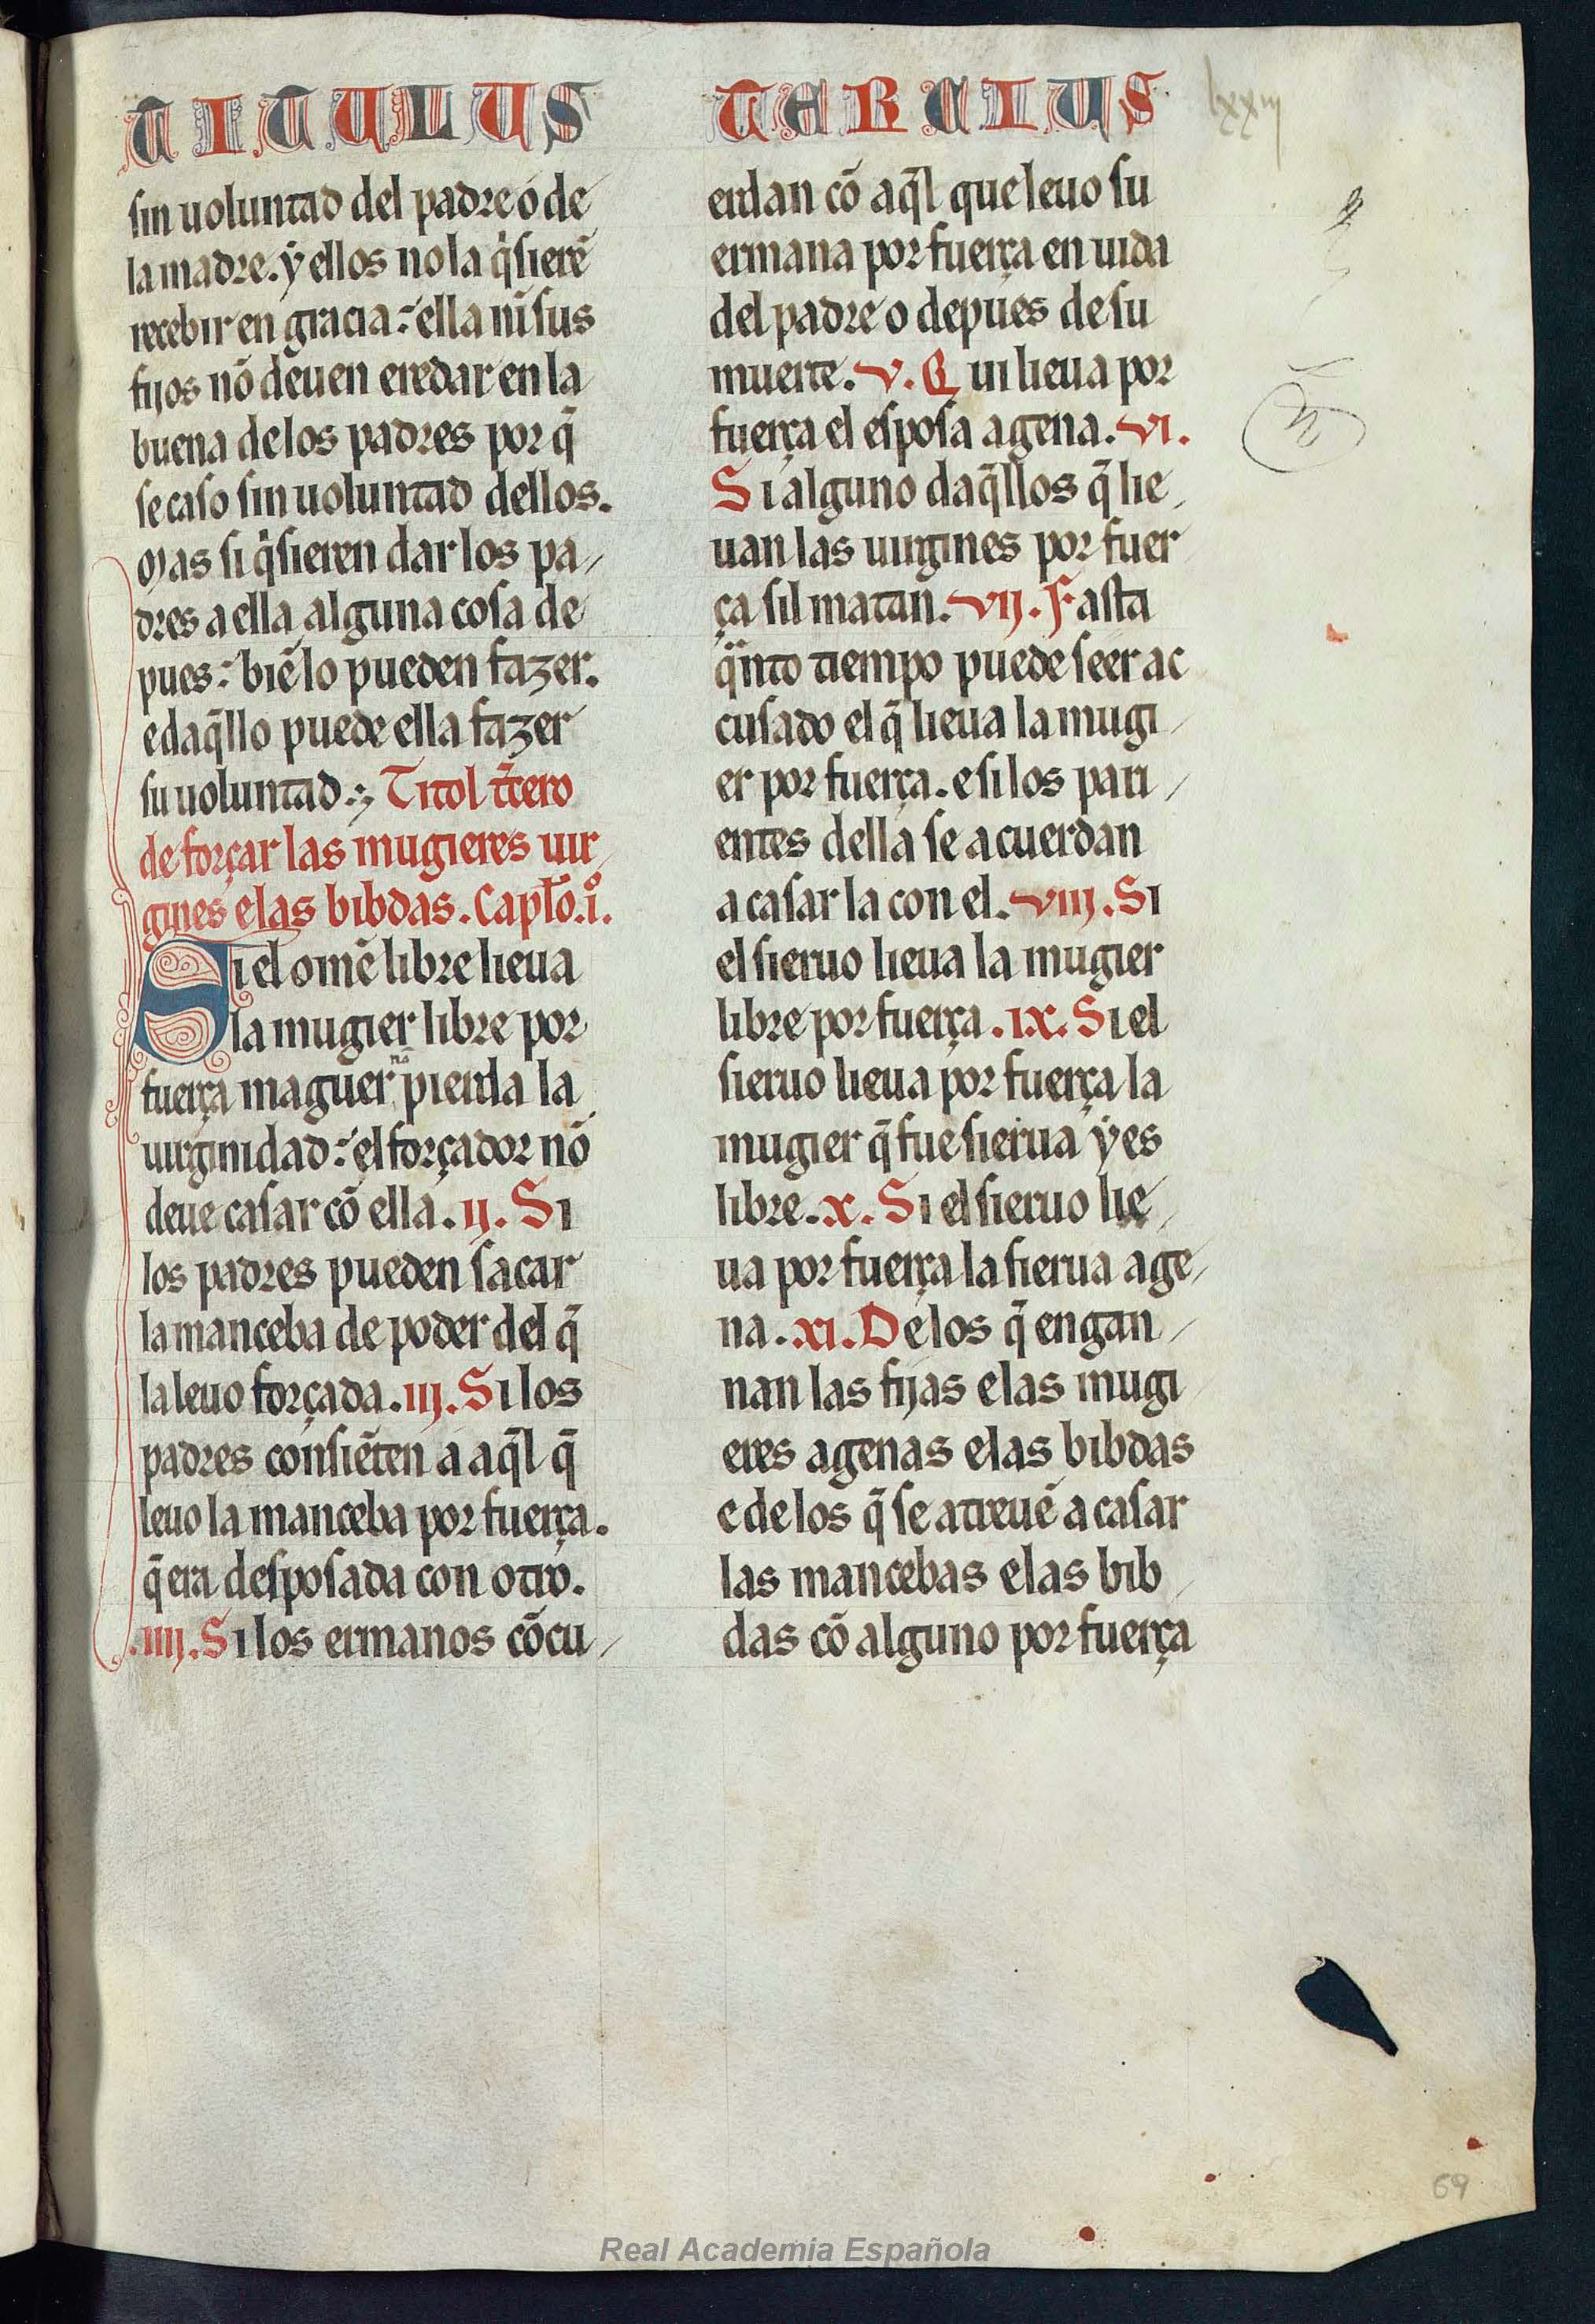 TITULUS TERCIUS
lxxiii
sin uoluntad del padre o de
la madre. ẏ ellos no la q̇sierē
recebir en gracia: ella ni sus
fijos nō deuen eredar en la
buena delos padres por q̄
se caso sin uoluntad dellos.
Mas si q̇sieren dar los pa/
dres a ella alguna cosa de
pues: biē lo pueden fazer.
e daq̄llo puede ella fazer
su uoluntad.; Titol t̄cero
de forçar las mugieres uir/
gines e las bibdas. Capłō.i.º
Si el omē libre lieua
la mugier libre por
fuerça maguer nō pierda la
uirginidad: el forçador nō
deue casar cō ella. ij. Si
los padres pueden sacar
la manceba de poder del q̄
la leuo forçada. iij. Si los
padres consiēten a aq̄l q̄
leuo la manceba por fuerça.
q̄ era desposada con otro.
.iiij. Si los ermanos cōcu/
erdan cō aq̄l que leuo su
ermana por fuerça en uida
del padre o depues de su
muerte. v. Qui lieua por
fuerça el esposa agena. vi.
Si alguno daq̄llos q̄ lie/
uan las uirgines por fuer
ça sil matan. vij. Fasta
q̈nto tiempo puede seer ac
cusado el q̄ lieua la mugi/
er por fuerça. e si los pari/
entes della se acuerdan
a casar la con el. viij. Si
el sieruo lieua la mugier
libre por fuerça. ix. Si el
sieruo lieua por fuerça la
mugier q̄ fue sierua ẏ es
libre. x. Si el sieruo lie/
ua por fuerça la sierua age/
na. xi. De los q̄ engan/
nan las fijas e las mugi/
eres agenas e las bibdas
e de los q̄ se atreuē a casar
las mancebas e las bib/
das cō alguno por fuerça
69
Real Academia Española